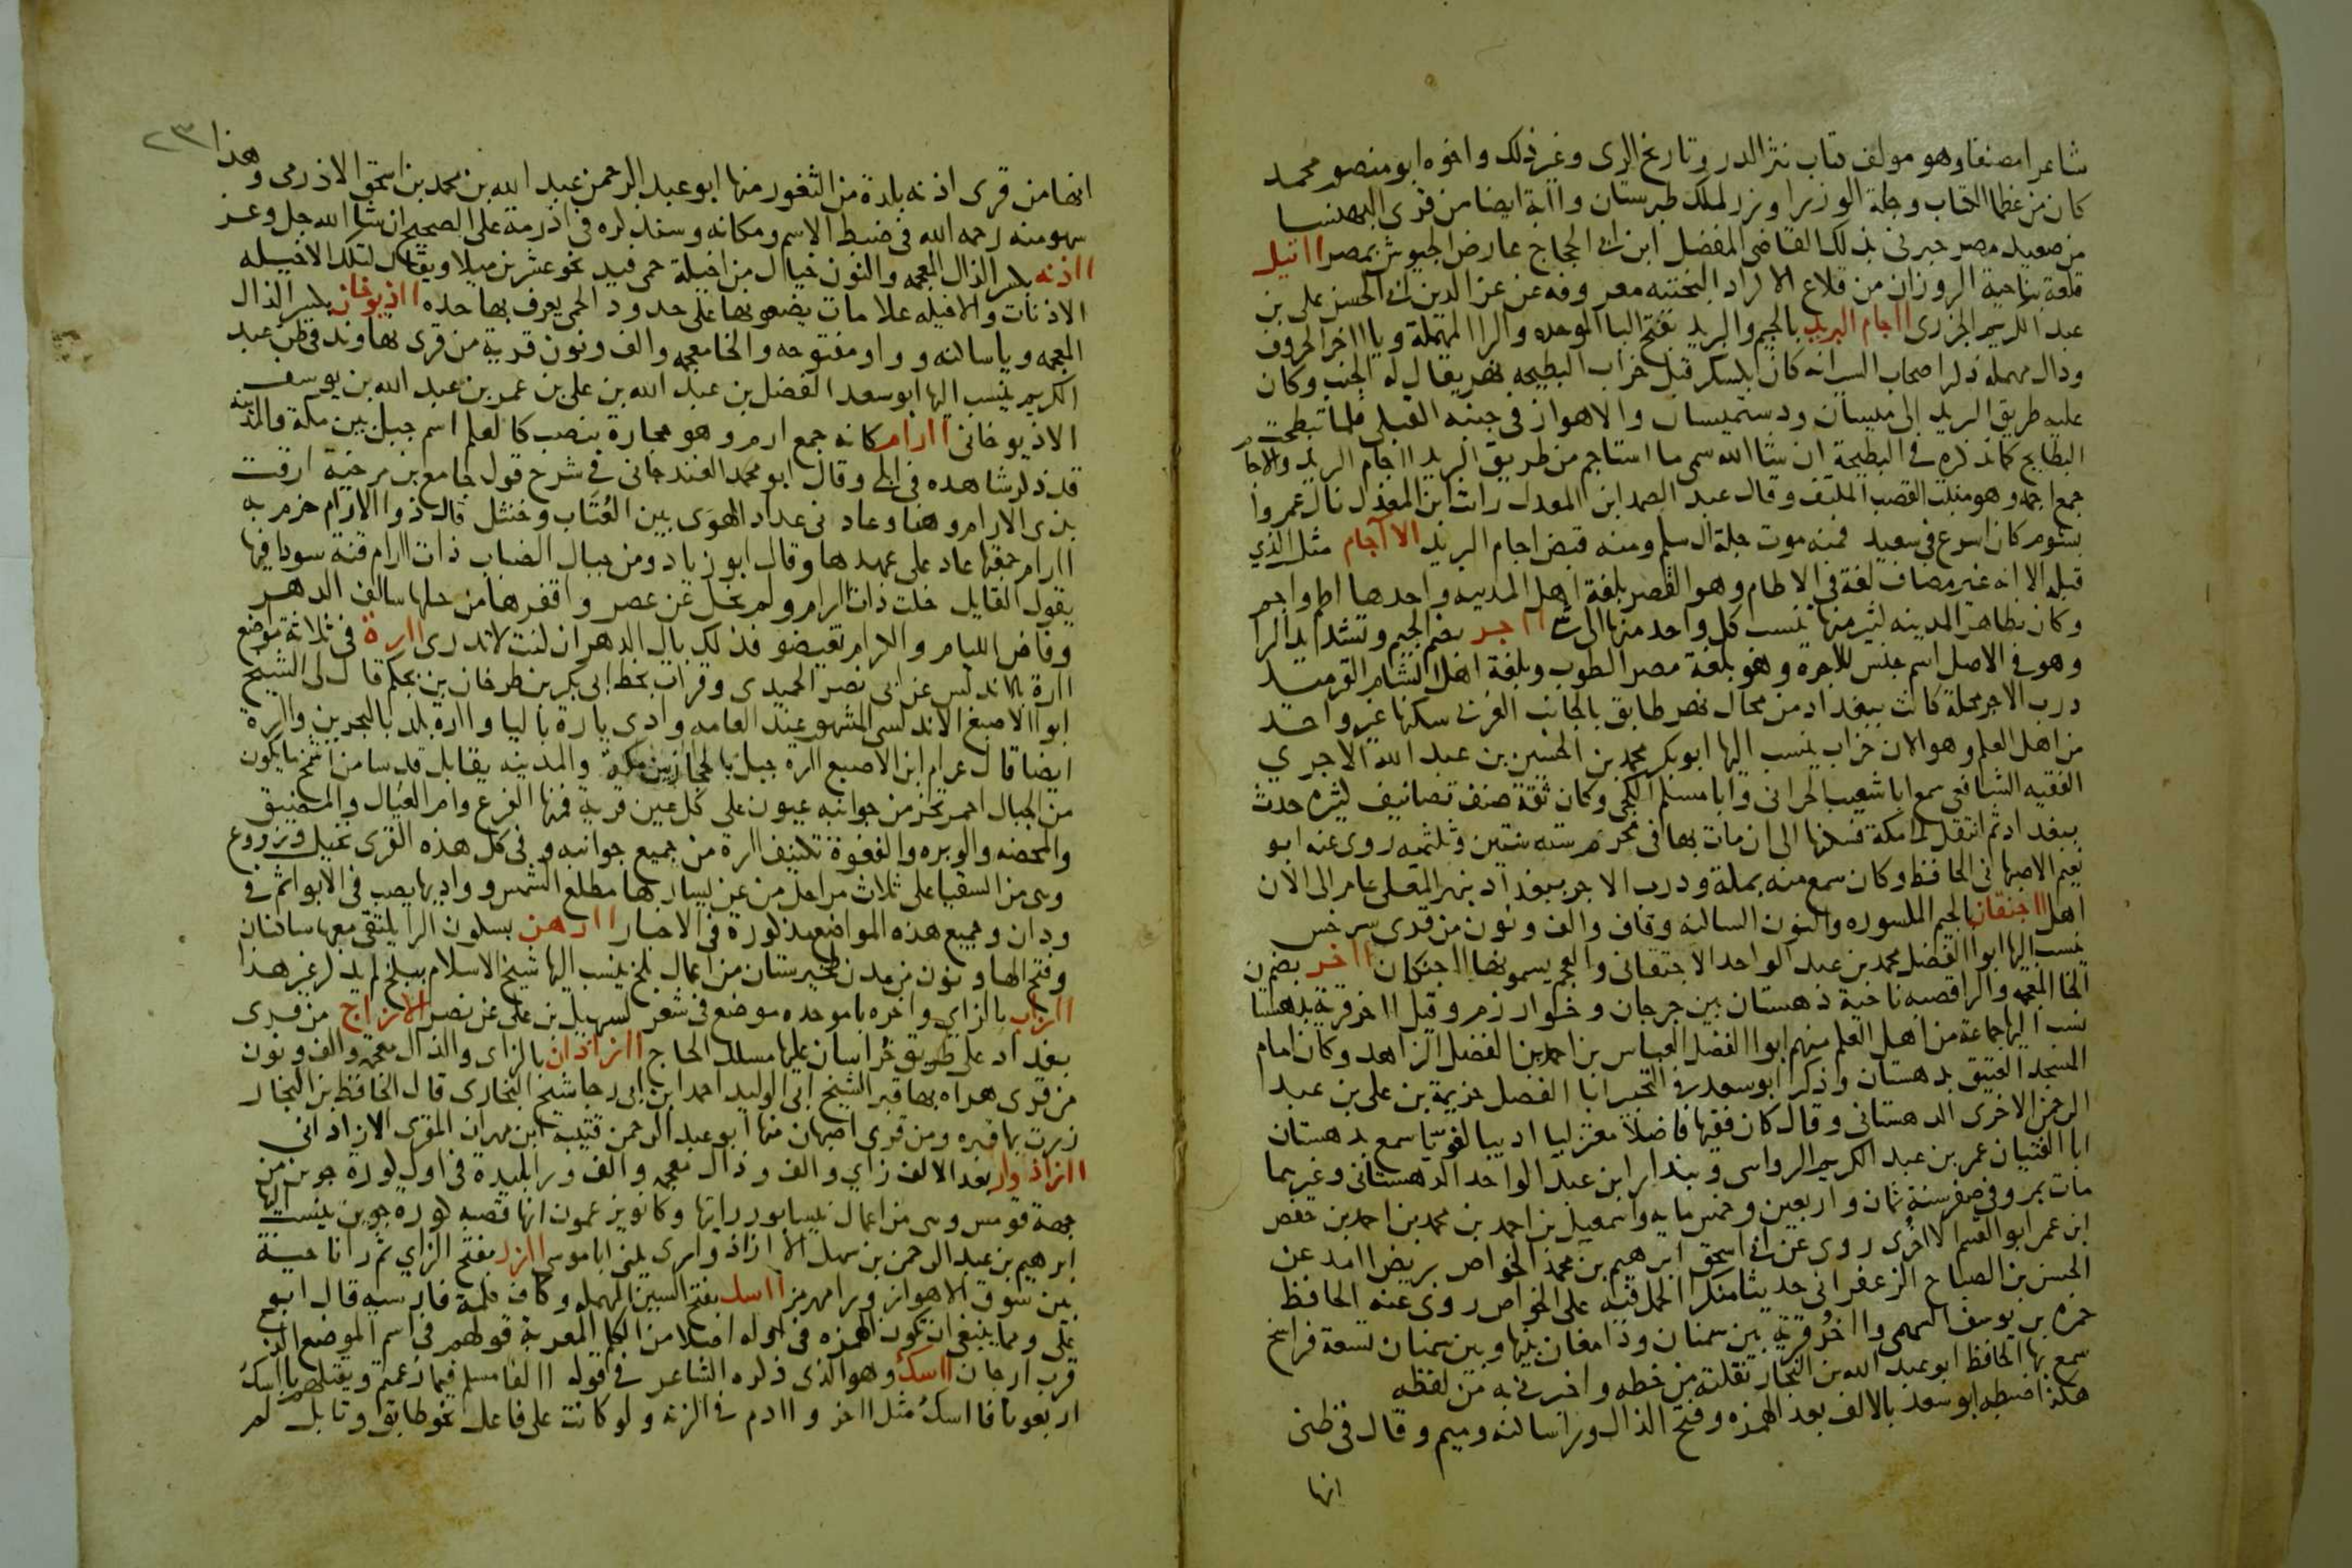 شاعرا مصنفا وهو مولف كتاب نثر الدر وتاريخ الرى وغير ذلك واخوه ابو منصور محمد
كان من عظما الكتاب وجلة الوزرا وزر لملك طبرستان واابة ايضا من قرى البهنسا
من صعيد مصر خبرنى بذلك القاضى المفضل ابن ابى الحجاج عارض الجيوش بمصر ااتيل
قلعة بناحية الزوزان من قلاع الاكراد البختيه معروفه عن عز الدين ابى الحسن على بن
عبد الكريم الجزرى ااجام البريد بالجيم والبريد بفتح البا الموحده والرا المهملة ويا ااخر الحروف
ودال مهمله ذكر اصحاب السير انه كان بكسكر قبل خراب البطيحه نهر يقال له الجنب وكان
عليه طريق البريد الى ميسان ودستميسان والاهواز فى جنبه القبلى فلما تبطحت
البطايح كما نذكره فى البطيحة ان شا الله سمى ما استاجم من طريق البريد ااجام البريد والاجام
جمع اجمه وهو منبت القصب الملتف وقال عبد الصمد ابن المعدل رات ابن المعذل نال عمروا
بشوم كان اسرع فى سعيد فمنه موت جلة ال سلم ومنه قبض اجام البريد الاآجام مثل الذي
قبله الا انه غير مضاف لغة فى الاطام وهو القصر بلغة اهل المدينه واحدها اطم واجم
وكان بظاهر المدينه كثير منها ينسب كل واحد منها الى شى ااجر بضم الجيم وتشديد الرا
وهو فى الاصل اسم جنس للاجره وهو بلغة مصر الطوب وبلغة اهل الشام القرميد
درب الاجر محلة كانت ببغداد من محال نهر طابق بالجانب الغربى سكنها غير واحد
من اهل العلم وهو الان خراب ينسب اليها ابو بكر محمد بن الحسين بن عبد الله الاجري
الفقيه الشافعى سمع ابا شعيب الحرانى وابا مسلم الكجى وكان ثقة صنف تصانيف كثيره حدث
ببغداد ثم انتقل الى مكة فسكنها الى ان مات بها فى محرم سنه ستين وثلثمه روى عنه ابو
نعيم الاصبهانى الحافظ وكان سمع منه بمكة ودرب الاجر ببغداد بنهر المعلى عامر الى الان
اهل ااجنقان بالجيم المكسوره والنون الساكنه وقاف والف ونون من قرى سرخس
ينسب اليها ابو االفضل محمد بن عبد الواحد الاجنقانى والعجم يسمونها ااجنكان ااخر بضمين
الخا المعجمه والرا قصبه ناحية دهستان بين جرجان وخوارزم وقيل ااخر قرية بدهستان
نسب اليها جماعة من اهل العلم منهم ابو االفضل العباس بن احمد بن الفضل الزاهد وكان امام
المسجد العتيق بدهستان وذكر ابو سعد فى التحبير ابا الفضل خزيمة بن على بن عبد
الرحمن الاخرى الدهستانى وقال كان فقيها فاضلا معتزليا اديبا لغويا سمع بدهستان
ابا الفتيان عمر بن عبد الكريم الرواسى وبندار ابن عبد الواحد الدهستانى وغيرهما
مات بمرو فى صفر سنة ثمان واربعين وخمس مايه واسمعيل بن احمد بن محمد بن احمد بن حفص
ابن عمر ابو القسم الاخرى روى عن ابى اسحق ابرهيم بن محمد الخواص بربض اامد عن
الحسن بن الصباح الزعفرانى حديثا منكرا الحمل فيه على الخواص روى عنه الحافظ
حمزه بن يوسف السهمى وااخر قرية بين سمنان ودامغان بينها وبين سمنان تسعة فراسخ
سمع بها الحافظ ابو عبد الله بن النجار نقلته من خطه واخبرنى به من لفظه
هكذا ضبطه ابو سعد بالالف بعد الهمزه وفتح الذال ورا ساكنه وميم وقال فى ظنى
انها
٢٣
انها من قرى اذنه بلدة من الثغور منها ابو عبد الرحمن عبد الله بن محمد بن اسحق الاذرمى وهذا
سهو منه رحمه الله فى ضبط الاسم ومكانه وسنذكره فى اذرمة على الصحيح ان شا الله جل وعز
ااذنه بكسر الذال المعجمه والنون خيال من اخيلة حمى فيد نحو عشرين ميلا ويقال لتلك الاخيله
الاذنات والاخيله علامات يضعو بها على حدود الحمى يعرف بها حده ااذيوخان بكسر الذال
المعجمه ويا ساكنه وواو مفتوحه والخا معجمه والف ونون قرية من قرى نهاوند فى ظن عبد
الكريم ينسب اليها ابو سعد الفضل بن عبد الله بن على بن عمر بن عبد الله بن يوسف
الاذيوخانى اارام كانه جمع ارم وهو حجارة تنصب كالعلم اسم جبل بين مكة والمدينه
قد ذكر شاهده فى ابلى وقال ابو محمد الغندجانى فى شرح قول جامع بن مرخية ارقت
بذى الارام وهنا وعادنى عداد الهوى بين العتاب وخنثل قال ذو االارام حزم به
اارام جمعتها عاد على عهدها وقال ابو زياد ومن جبال الضباب ذات اارام قنة سودا فيها
يقول القايل خلت ذات اارام ولم تخل عن عصر واقفرها من حلها سالف الدهر
وفاض الليام والكرام تغيضو فذلك بال الدهر ان كنت لا تدرى اارة فى ثلاثة مواضع
اارة بالاندلس عن ابى نصر الحميدى وقرات بخط ابى بكر بن طرخان بن بحكم قال لى الشيخ
ابو االاصبغ الاندلسى المشهور عند العامه وادى يارة باليا وااره بلد بالبحرين واارة
ايضا قال عرام ابن الاصبع ااره جبل بالحجاز بين مكة والمدينه يقابل قدسا من اشمخ ما يكون
من الجبال احمر تخر من جوانبه عيون على كل عين قرية فمنها الفرع وام العيال والمضيق
والمحضه والوبره والفغوة تكتنف اارة من جميع جوانبه وفى كل هذه القرى نخيل وزروع
وهى من السقيا على ثلاث مراحل من عن يسارها مطلع الشمس وواديها يصب فى الابوا ثم فى
ودان وجميع هذه المواضع مذكورة فى الاخبار اارهن بسكون الرا يلتقى معها ساكنان
وفتح الها ونون من مدن طخيرستان من اعمال بلخ ينسب اليها شيخ الاسلام ببلخ لم يذكر غير هذا
اازاب بالزاي واخره با موحده موضع فى شعر لسهيل بن على عن نصر الازاج من قرى
بغداد على طريق خراسان عليها مسلك الحاج اازاذان بالزاى والذال معجمه والف ونون
من قرى هراه بها قبر الشيخ ابى الوليد احمد ابن ابى رجا شيخ البخارى قال الحافظ بن النجار
زرت بها قبره ومن قرى اصبهان منها ابو عبد الرحمن قتيبه ابن مهران المقرى الازاذانى
اازاذوار بعد الالف زاي والف وذال معجمه والف ورا بليده فى اول كورة جوين من
جهة قومس وهى من اعمال نيسابور رايتها وكانو يزعمون انها قصبه كوره جوين ينسب اليها
ابرهيم بن عبد الرحمن بن سهل الاازاذوارى يكنى ابا موسى اازر بفتح الزاي ثم را ناحية
بين سوق الاهواز ورامهرمز ااسك بفتح السين المهمله وكاف كلمة فارسيه قال ابو
على ومما ينبغى ان تكون الهمزه فى اوله اصلا من الكلم المعربة قولهم فى اسم الموضع الذى
قرب ارجان ااسك وهو الذى ذكره الشاعر فى قوله االفا مسلم فيما زعمتم ويقتلهم باسك
اربعونا فااسك مثل ااخر واادم فى الزنة ولو كانت على فاعل نحو طابق وتابل لم